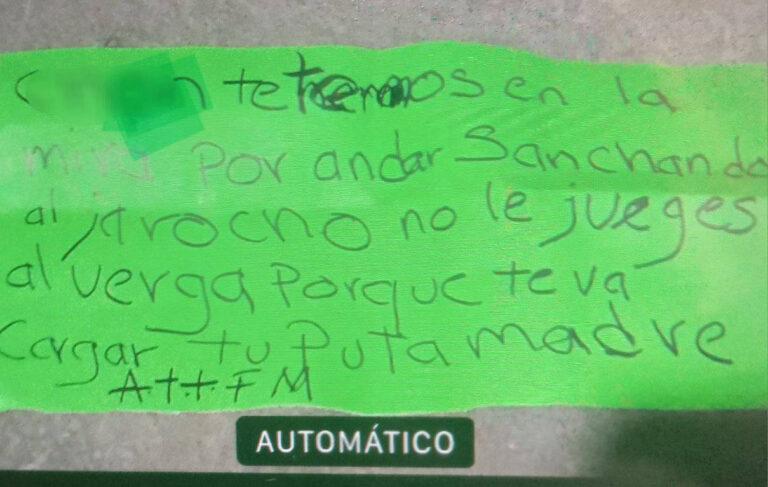 te tenemos en la
mira por andar Sanchando
al jarocho no le jueges
al verga porque te va
Cargar tu puta madre
Att FM
AUTOMÁTICO